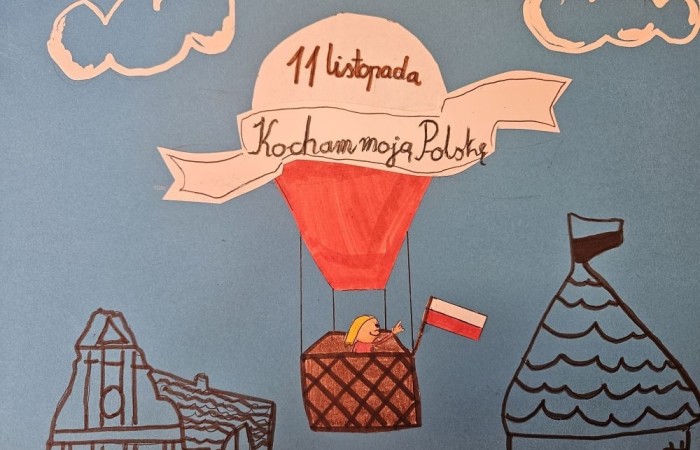 11 listopada
Kocham moją Polskę